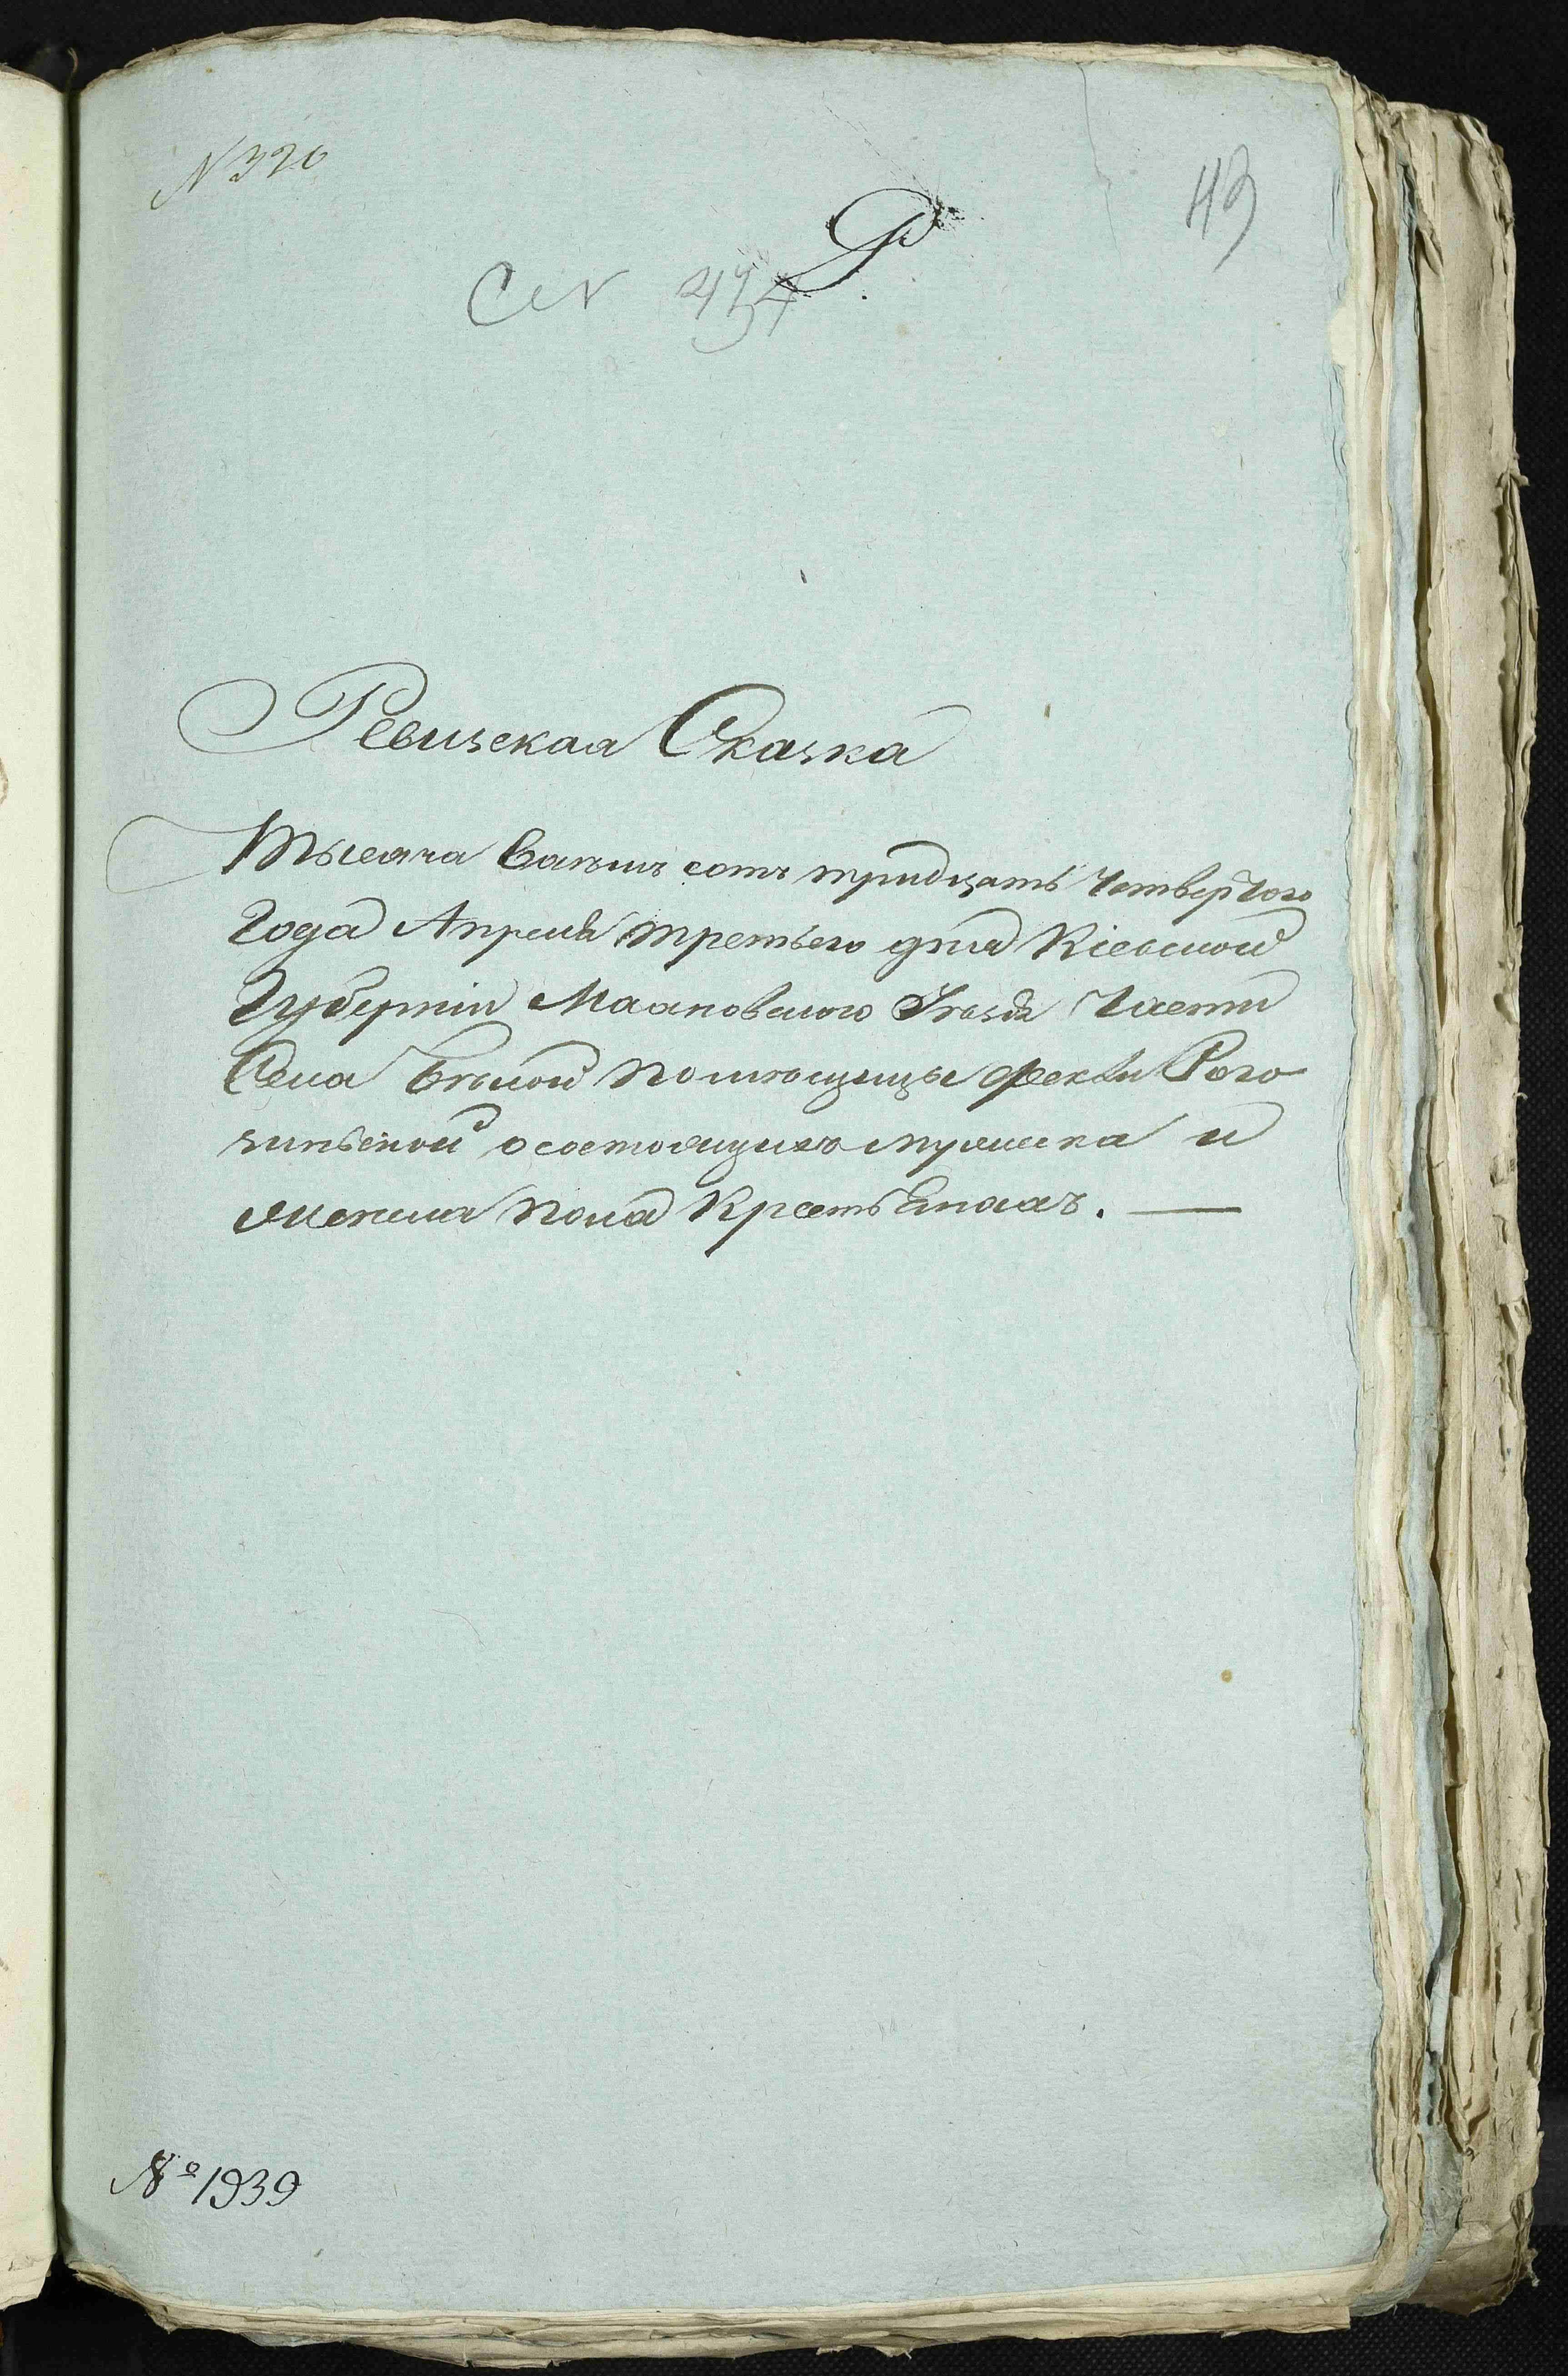 N 326
43
Р
Ревизская Сказка
Тысяча восемь сотъ тридцать четвертого
Года Апреля третьего дня Кіевской
Губерніи Махновского Уезда Части
Села Белой помѣщицы Феклы Рого
зинской о состоящихъ мужеска и
женска пола Крестьянахъ. —
№ 1939